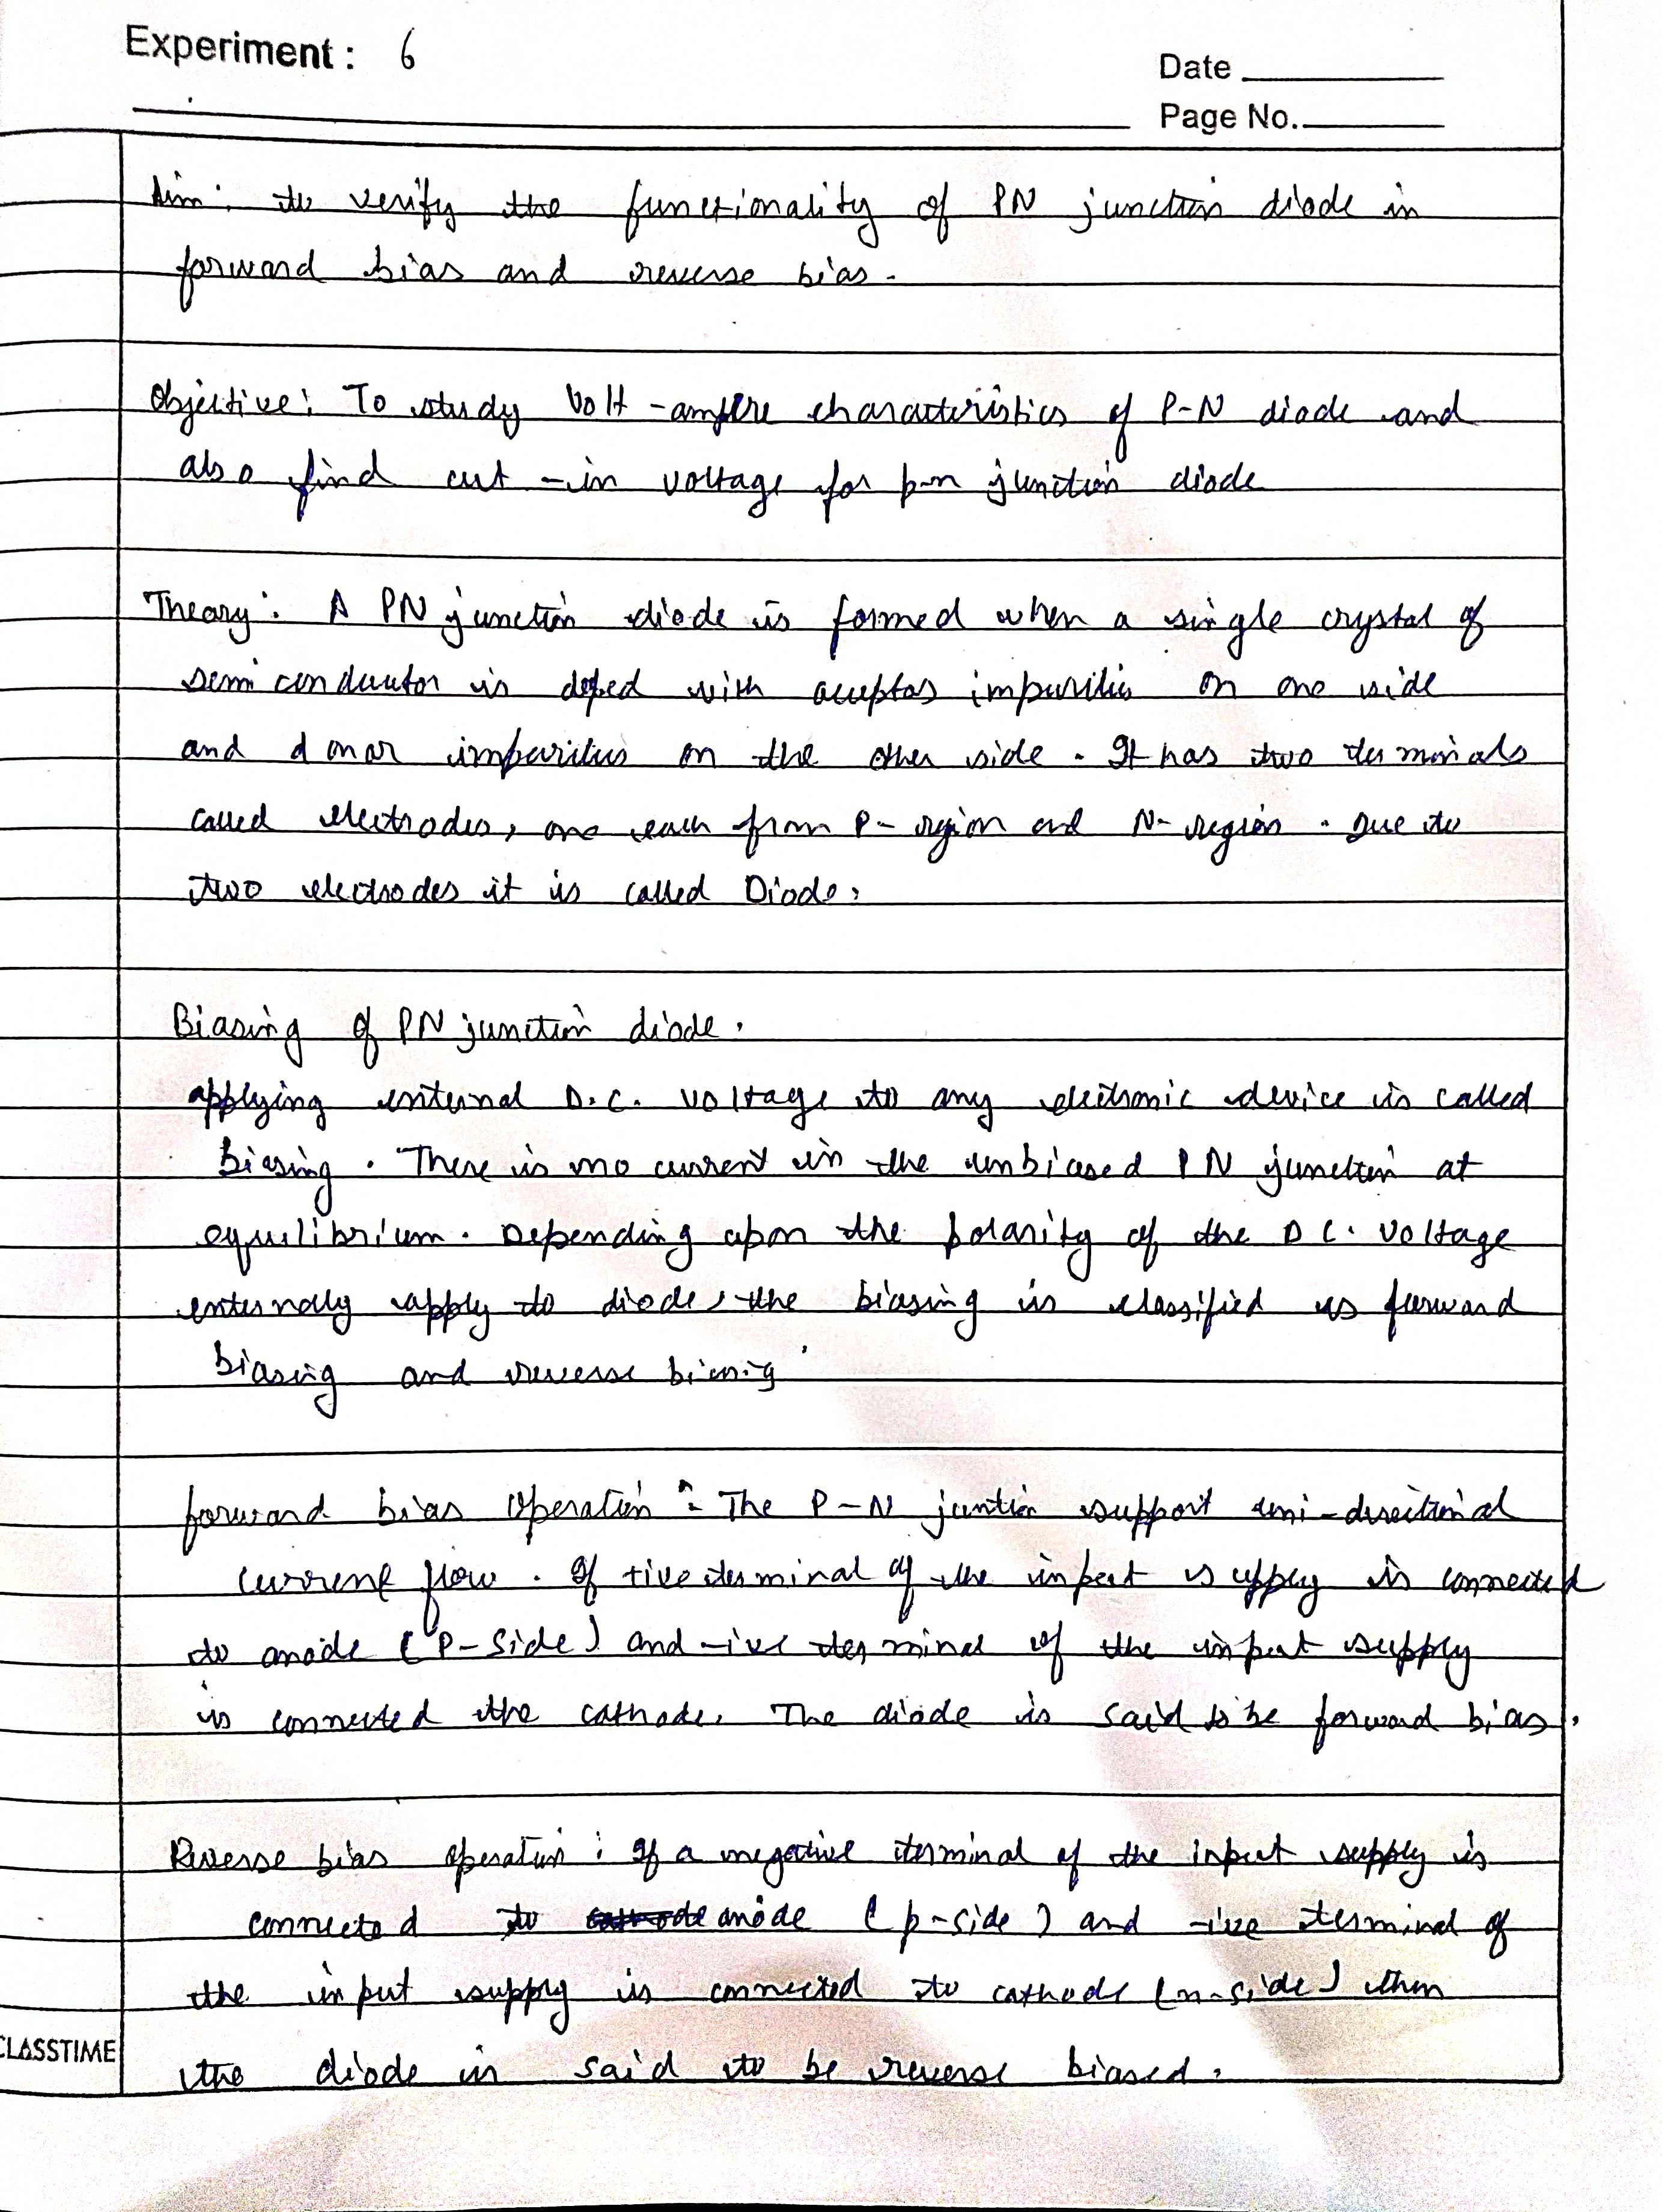 Experiment : 6
Date
Page No.
Aim : to verify the functionality of PN junction diode in
forward bias and reverse bias.
Objective : To study Volt-ampere characteristics of P-N diode and
also find cut-in voltage for p-n junction diode
Theory : A PN junction diode is formed when a single crystal of
semiconductor is doped with acceptor impurities on one side
and donar impurities on the other side. It has two terminals
called electrodes, one each from P-region and N-region. Due to
two electrodes it is called Diode.
Biasing of PN junction diode.
applying external D.C. voltage to any electronic device is called
biasing. There is no current in the unbiased PN junction at
equilibrium. Depending upon the polarity of the D C. voltage
externally apply to diode, the biasing is classified as forward
biasing and reverse biasing
forward bias operation :- The P-N junction support uni-directional
current flow. If +ive terminal of the input supply is connected
to anode (P-side) and -ive terminal of the input supply
is connected the cathode. The diode is said to be forward bias.
Reverse bias operation : If a negative terminal of the input supply is
connected to cathode anode (p-side) and -ive terminal of
the input supply is connected to cathode (n-side) then
the diode is said to be reverse biased.
CLASSTIME